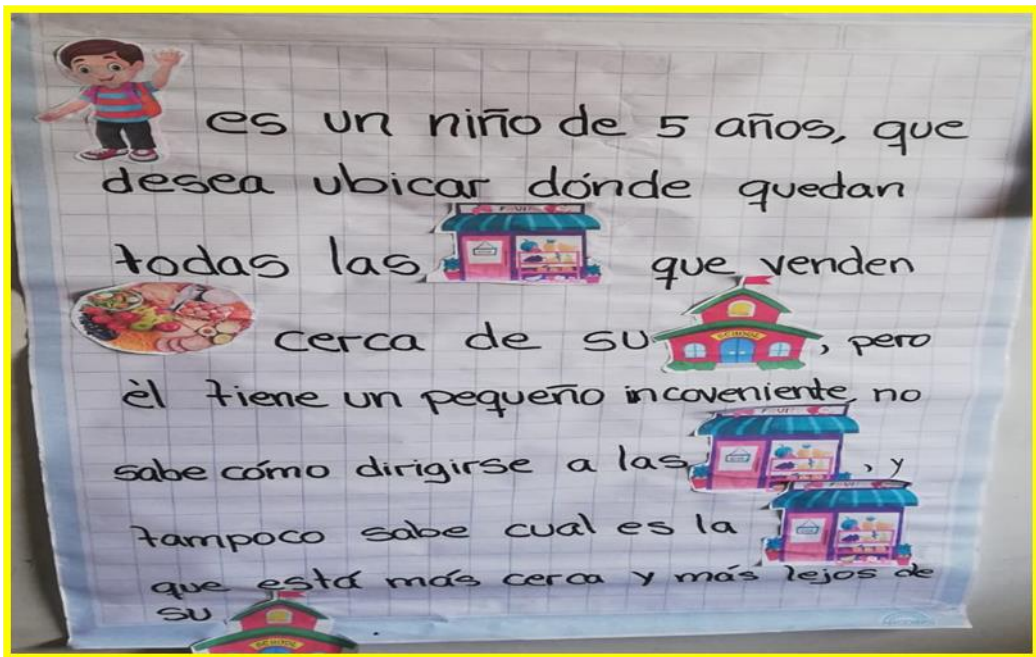 es un niño de 5 años, que
desea ubicar dónde quedan
todas las que venden
cerca de su SCHOOL, pero
él tiene un pequeño incoveniente no
sabe cómo dirigirse a las, y
tampoco sabe cual es la
que está más cerca y más lejos de
su
SCHOOL.